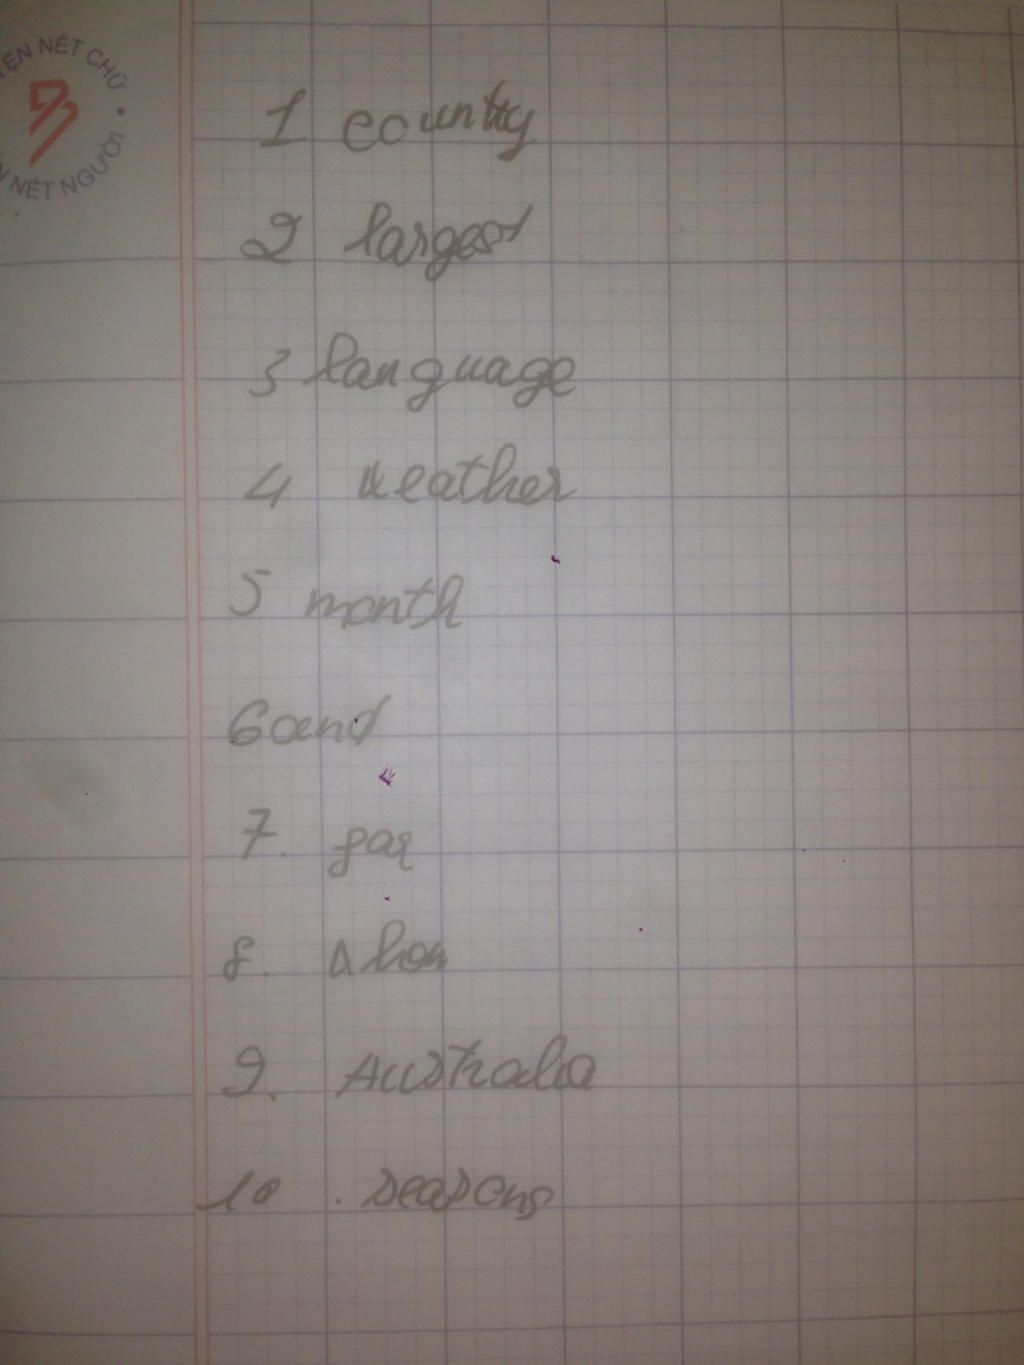 ỆN NÉT CHỮ
N NẾT NGƯỜI
1 country
2 largest
3 language
4 weather
5 month
6 and
7. far
8.
9. Australia
10. seasons